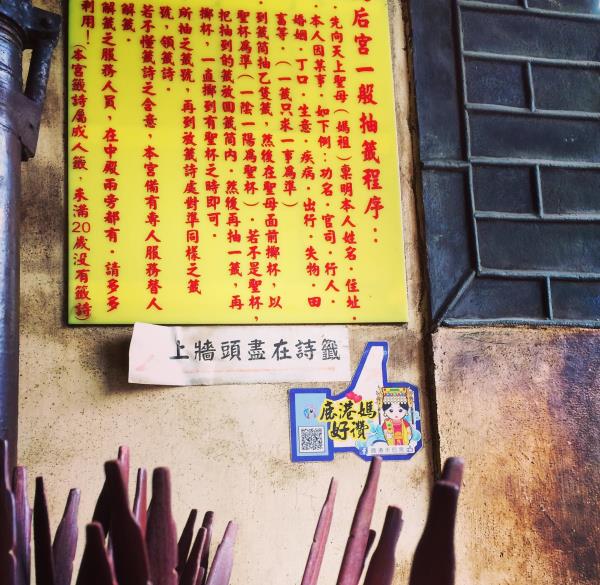 后宮一般抽籤程序：
．先向天上聖母（媽祖）稟明本人姓名．住址．
．本人因某事．如下例：功名．官司．行人．
婚姻．丁口．生意．疾病．出行．失物．田
畜等．（一籤只求一事為準）
到籤筒抽乙隻籤，然後在聖母面前擲杯，以
聖杯為準（一陰一陽為聖杯）．若不是聖杯，
把抽到的籤放回籤筒內．然後再抽一籤，再
擲杯，一直擲到有聖杯之時即可．
所抽之籤號，再到放籤詩處對準同樣之籤
號，領籤詩．
若不懂籤詩之含意，本宮備有專人服務替人
解籤．
解籤之服務人員，在中殿兩旁都有．請多多
利用！（本宮籤詩屬成人籤，未滿20歲沒有籤詩）
籤詩在盡頭牆上
鹿港媽
好讚